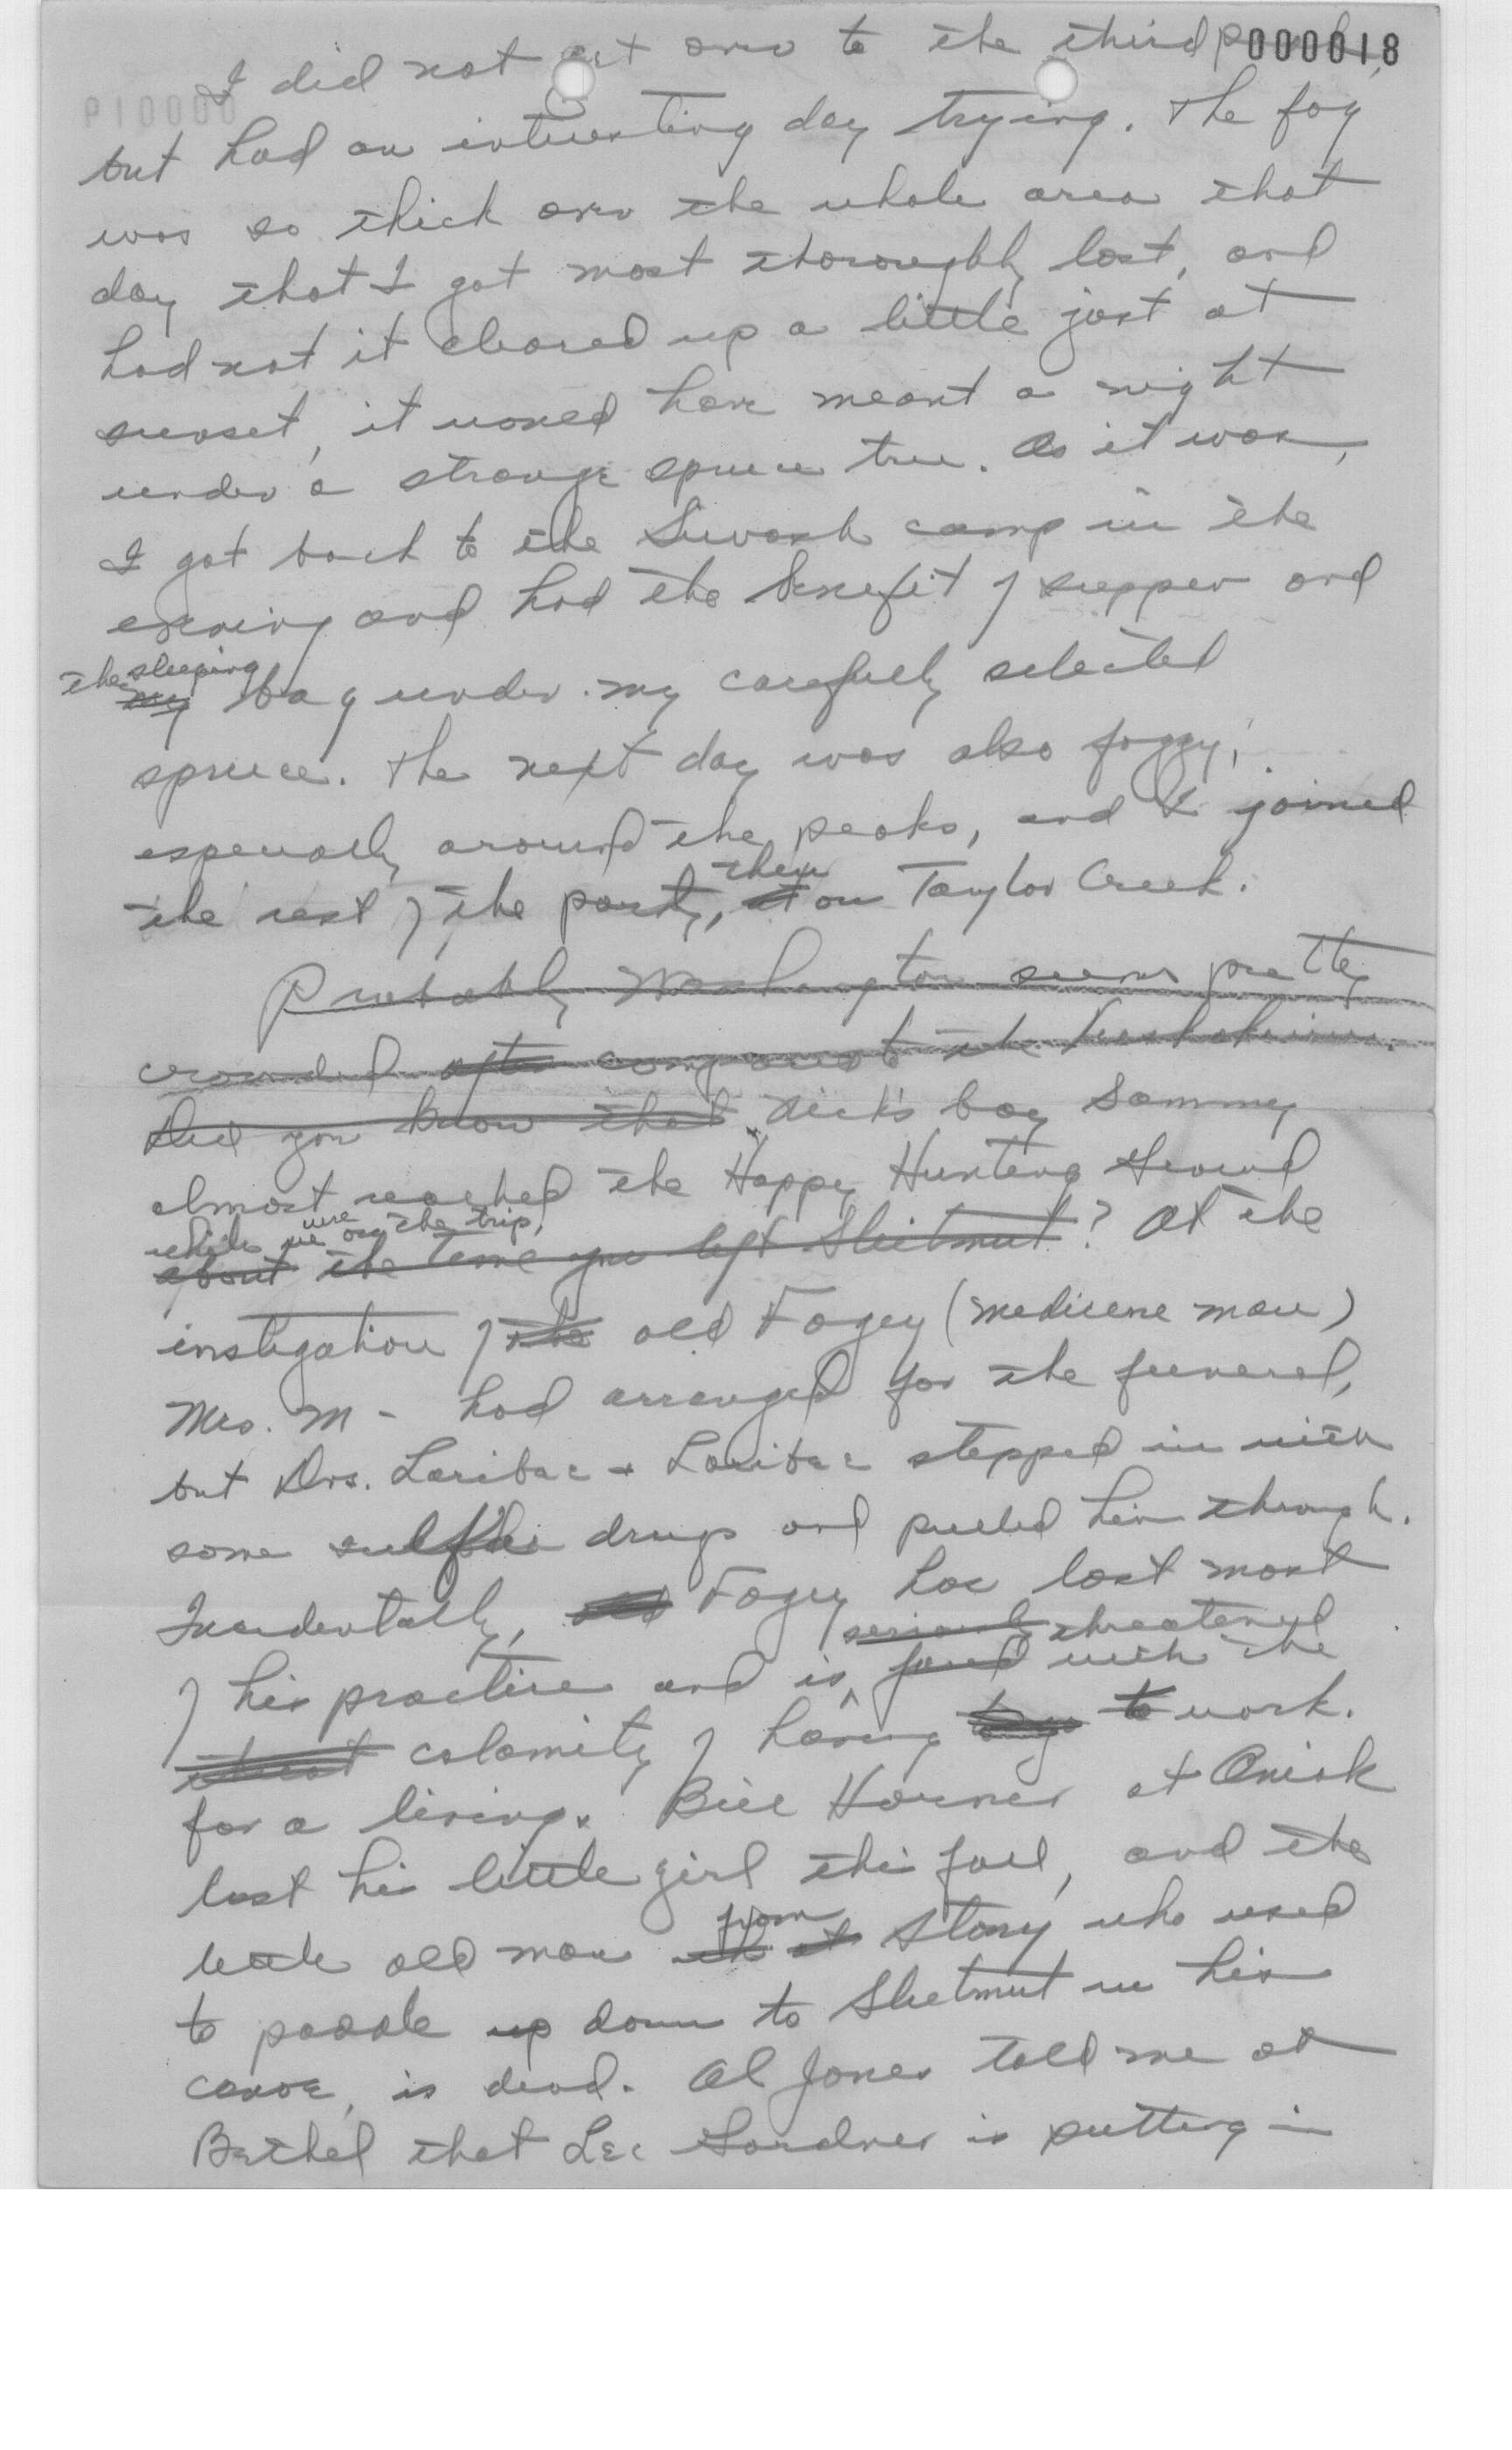 000018
I did not get over to the third peak,
but had an interesting day trying. The fog
was so thick over the whole area that
day that I got most thoroughly lost, and
had not it cleared up a little just at
sunset, it would have meant a night
under a strange spruce tree. As it was,
I got back to the Siwash camp in the
evening and had the benefit of supper and
the sleeping
my bag under my carefully selected
spruce. The next day was also foggy,
especially around the peaks, and I joined
then
the rest of the party, at on Taylor Creek.
Probably Washington seems pretty
crowded after compared to the Kuskokwim.
Did you know that Nick's boy Sammy
almost reached the Happy Hunting Ground
while we were on the trip.
about the time you left Sleitmut? At the
instigation of the old Fogey (medicene man)
Mrs. M- had arranged for the funeral,
but Drs. Laribee & Laribee stepped in with
some sulpha drugs and pulled him through.
Incidentally, old Fogey has lost most
seriously threatened
of his practise and is faced with the
calamity of having to go to work.
for a living. Bill Horner at Aniak
lost his little girl this fall, and the
from
little old man at Stony who used
to paddle up down to Sleetmut in his
canoe, is dead. Al Jones told me at
Bethel that Lee Gardner is putting in